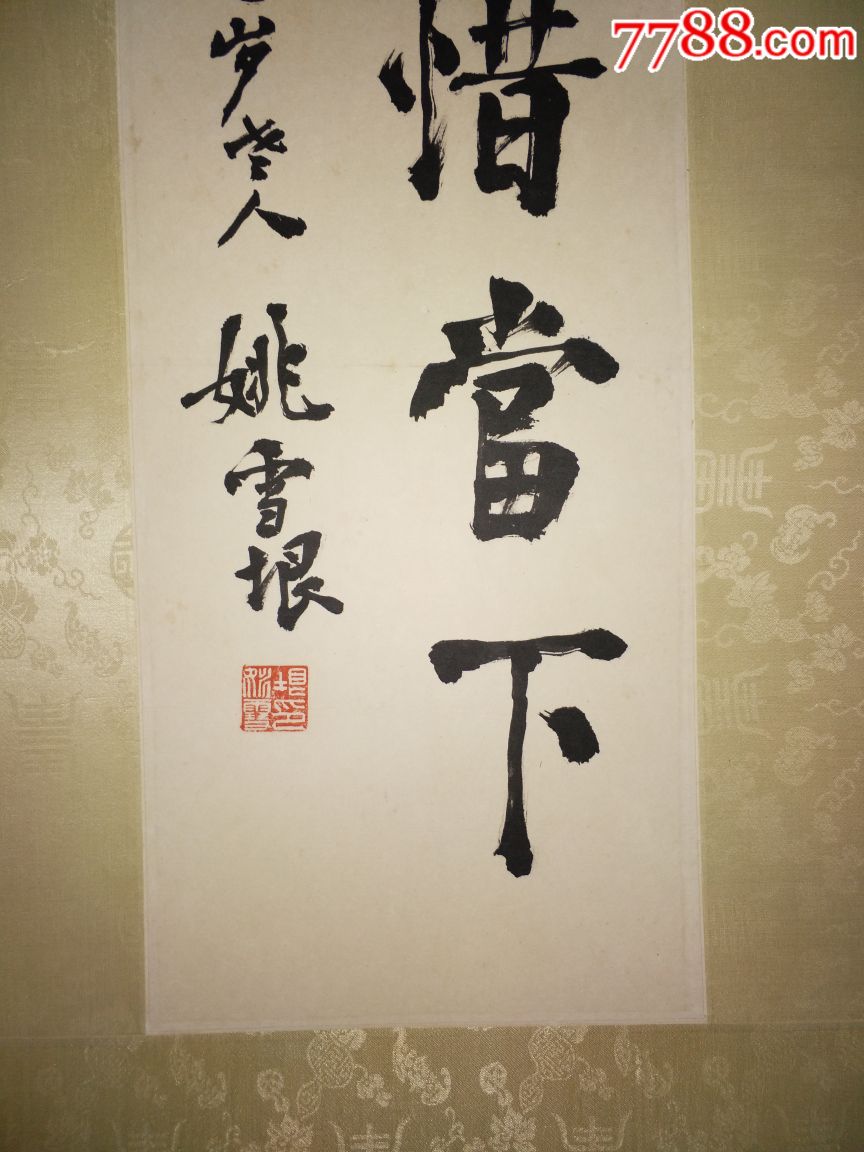 7788.com
惜當下
岁老人
姚雪垠
姚雪垠印